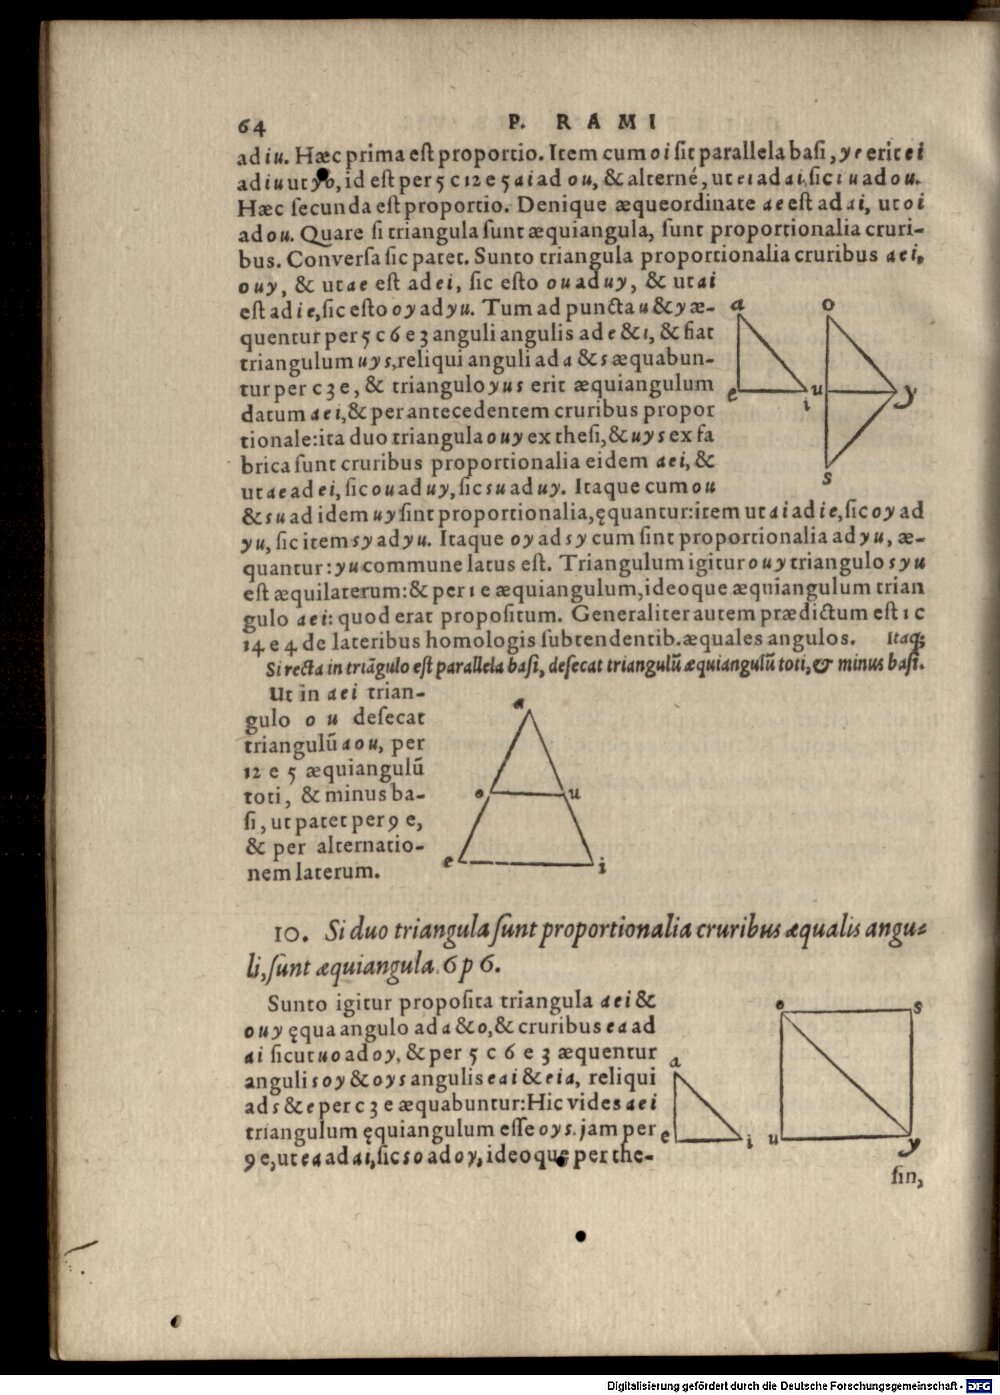 64 P. RAMI
ad iu. Hæc prima eſt proportio. Item cum oi ſit parallela baſi, ye erit ei
ad iu ut yo, id eſt per 5 c 12 e 5 ai ad ou, & alterné, ut ei ad ai, ſic iu ad ou.
Hæc ſecunda eſt proportio. Denique æqueordinate ae eſt ad ai, ut oi
ad ou. Quare ſi triangula ſunt æquiangula, ſunt proportionalia cruri-
bus. Converſa ſic patet. Sunto triangula proportionalia cruribus aei,
ouy, & ut ae eſt ad ei, ſic eſto ou ad uy, & ut ai
eſt ad ie, ſic eſto oy ad yu. Tum ad puncta u & y æ-
quentur per 5 c 6 e 3 anguli angulis ad e & i, & fiat
triangulum uys, reliqui anguli ad a & s æquabun-
tur per c 3 e, & triangulo yus erit æquiangulum
datum aei, & per antecedentem cruribus propor
tionale: ita duo triangula ouy ex theſi, & uys ex fa
brica ſunt cruribus proportionalia eidem aei, &
ut ae ad ei, ſic ou ad uy, ſic su ad uy. Itaque cum ou
& su ad idem uy ſint proportionalia, ęquantur: item ut ai ad ie, ſic oy ad
yu, ſic item sy ad yu. Itaque oy ad sy cum ſint proportionalia ad yu, æ-
quantur: yu commune latus eſt. Triangulum igitur ouy triangulo syu
eſt æquilaterum: & per 1 e æquiangulum, ideoque æquiangulum trian
gulo aei: quod erat propoſitum. Generaliter autem prædictum eſt 1 c
14 e 4 de lateribus homologis ſubtendentib. æquales angulos. Itaq;
Si recta in triãgulo eſt parallela baſi, deſecat triangulũ æquiangulũ toti, & minus baſi.
Ut in aei trian-
gulo o u deſecat
triangulũ aou, per
12 e 5 æquiangulũ
toti, & minus ba-
ſi, ut patet per 9 e,
& per alternatio-
nem laterum.
10. Si duo triangula ſunt proportionalia cruribus æqualis angu-
li, ſunt æquiangula. 6 p 6.
Sunto igitur propoſita triangula aei &
ouy ęqua angulo ad a & o, & cruribus ea ad
ai ſicut uo ad oy, & per 5 c 6 e 3 æquentur
anguli soy & oys angulis eai & eia, reliqui
ad s & e per c 3 e æquabuntur: Hic vides aei
triangulum ęquiangulum eſſe oys. jam per
9 e, ut ea ad ai, ſic so ad oy, ideoque per the-
ſin,
a
e
i
o
u
y
s
a
o
u
e
i
a
e
i
o
s
u
y
Digitalisierung gefördert durch die Deutsche Forschungsgemeinschaft - DFG